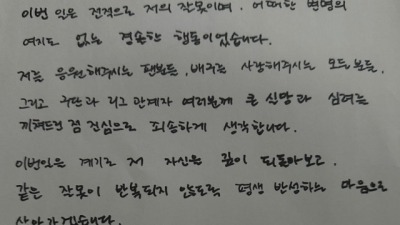 이번 일은 전적으로 저의 잘못이며, 어떠한 변명의
여지도 없는 경솔한 행동이었습니다.
저를 응원해주시는 팬분들, 배구를 사랑해주시는 모든분들,
그리고 구단과 리그 관계자 여러분께 큰 실망과 심려를
끼쳐드린 점 진심으로 죄송하게 생각합니다.
이번일을 계기로 저 자신을 깊이 되돌아보고,
같은 잘못이 반복되지 않도록 평생 반성하는 마음으로
살아가겠습니다.